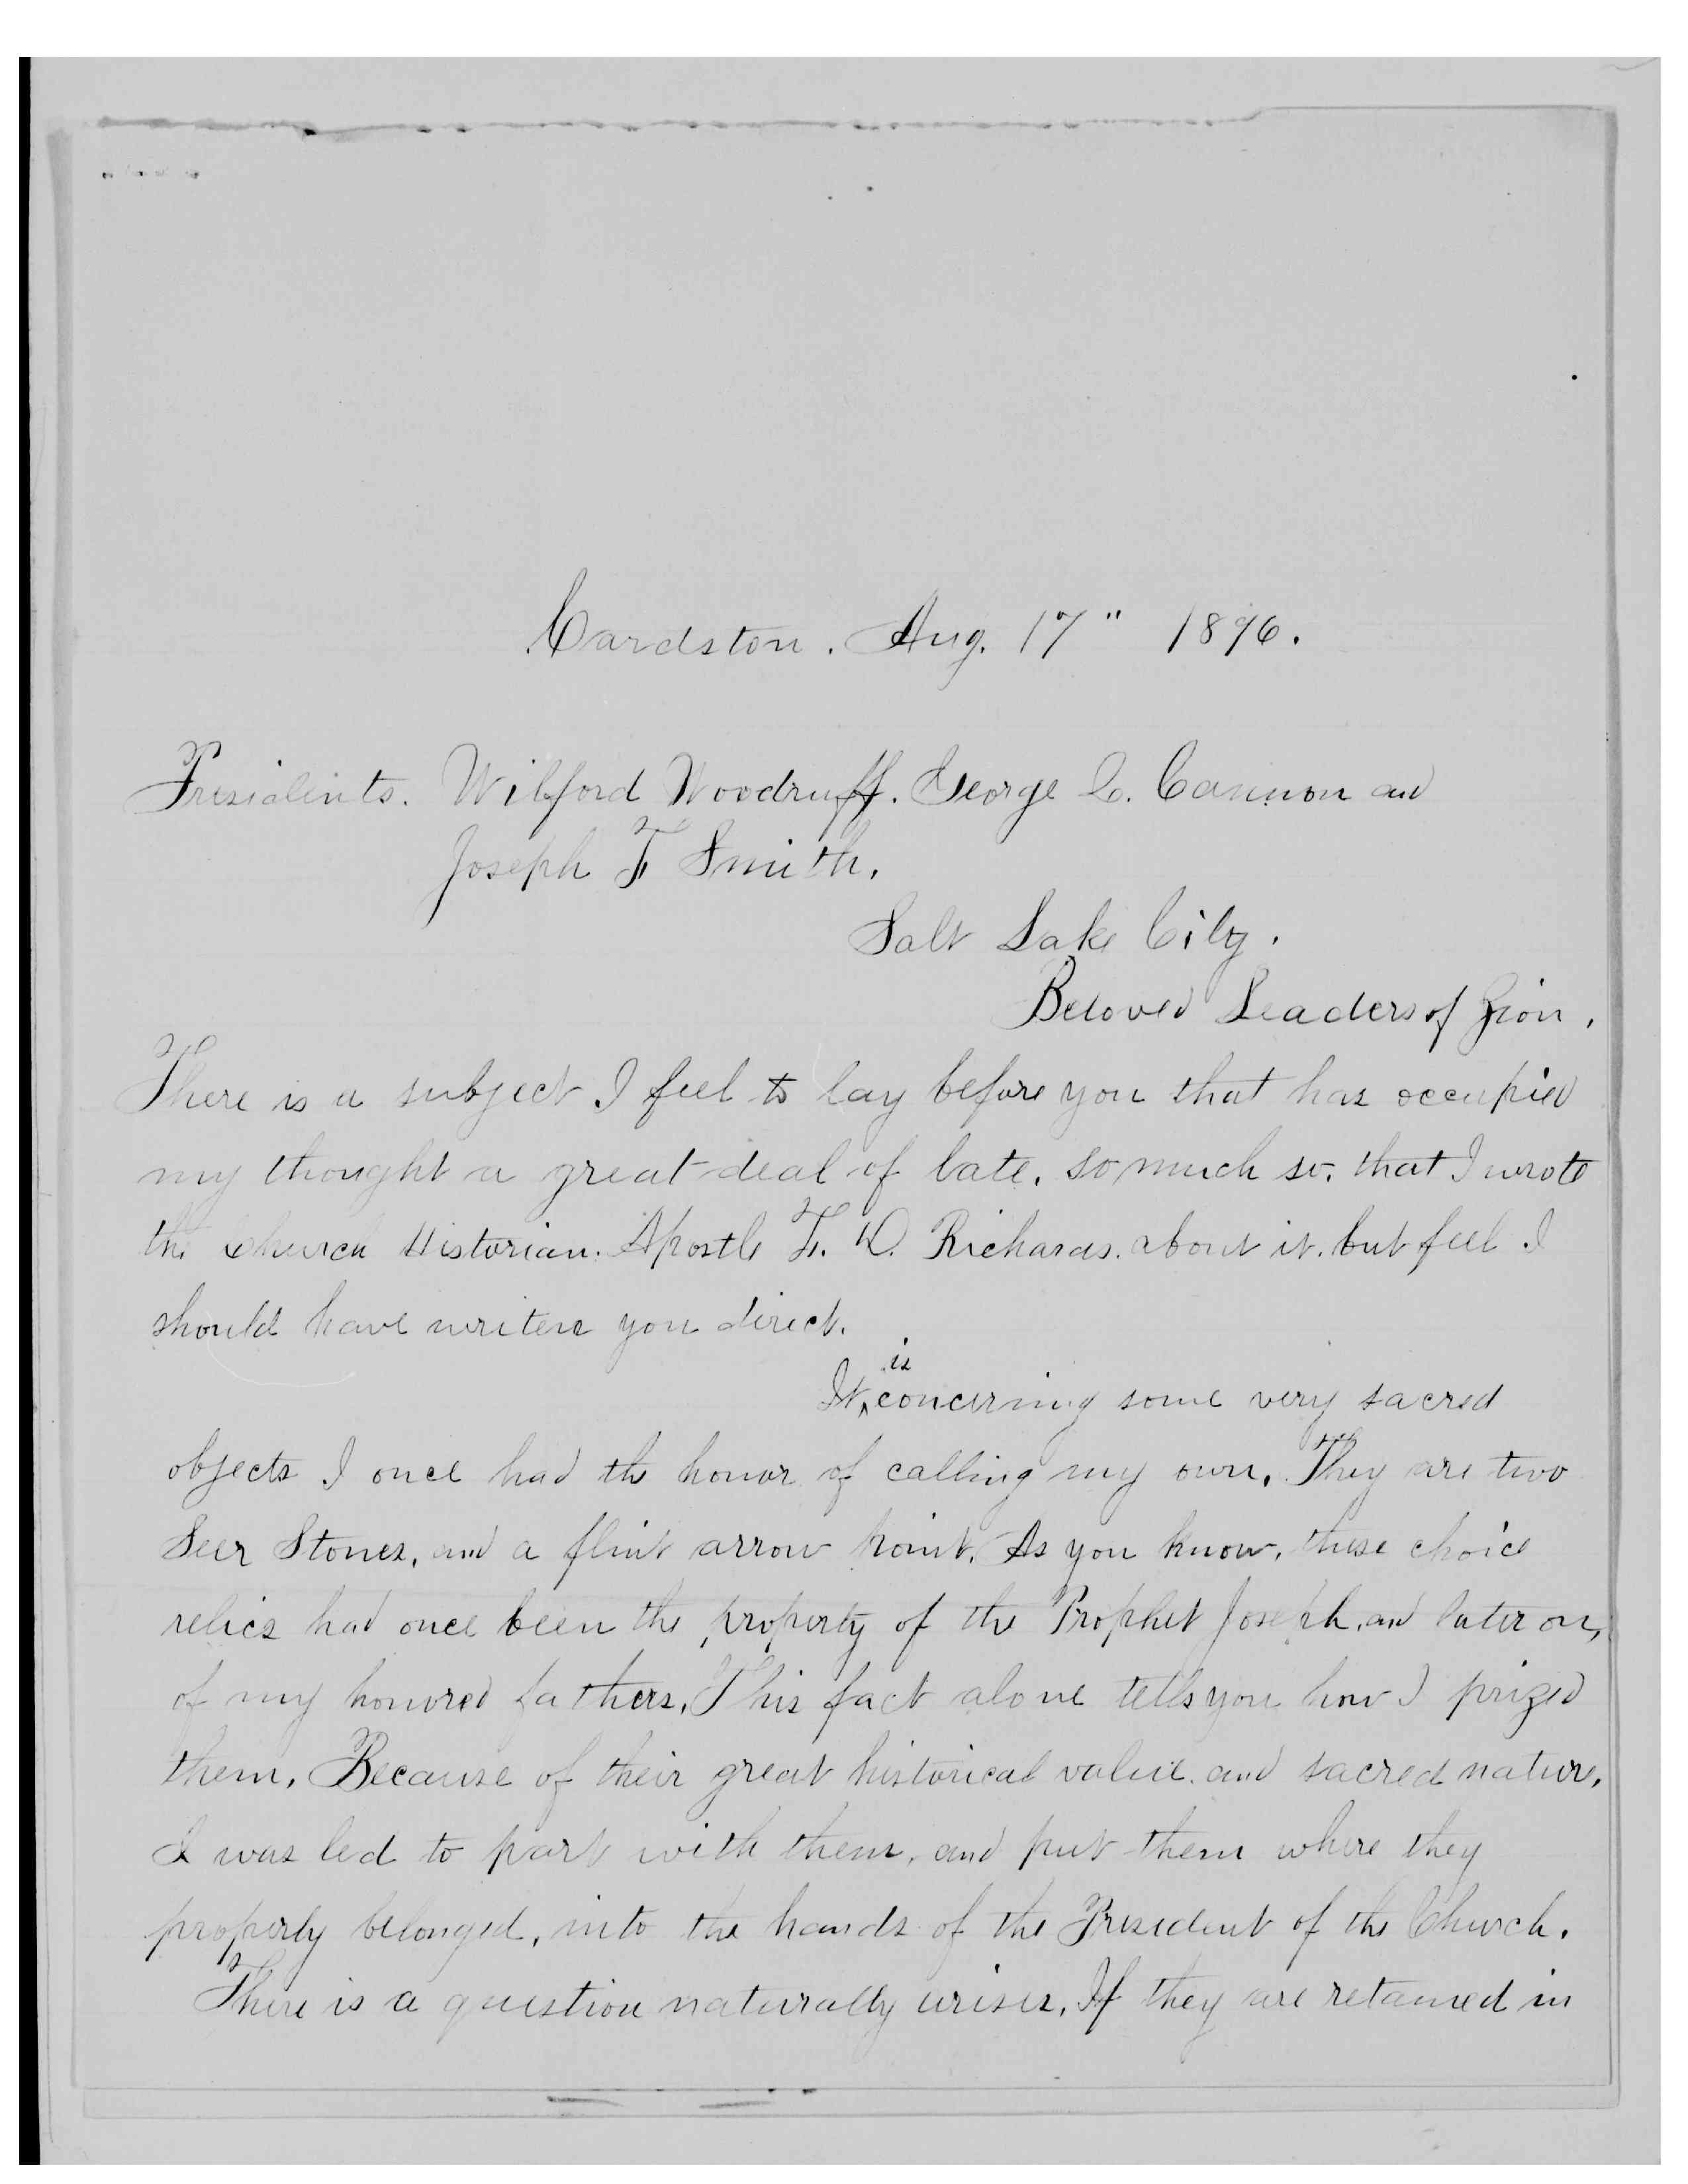 Cardston. Aug. 17" 1896.
Presidents. Wilford Woodruff. George Q. Cannon and
Joseph F Smith.
Salt Lake City.
Beloved Leaders of Zion.
There is a subject I feel to lay before you that has occupied
my thought a great deal of late. so much so. that I wrote
the Church Historian. Apostle F. D. Richards. about it. but feel I
should have writen you direct.
is
It ‸ concerning some very sacred
objects I once had the honor of calling my own. They are two
Seer Stones, and a flint arrow point. As you know, these choice
relics had once been the property of the Prophet Joseph. and later on,
of my honored fathers. This fact alone tells you how I prized
them. Because of their great historical value. and sacred nature,
I was led to part with them, and put them where they
properly belonged, into the hands of the President of the Church.
There is a question naturally arises, If they are retained in